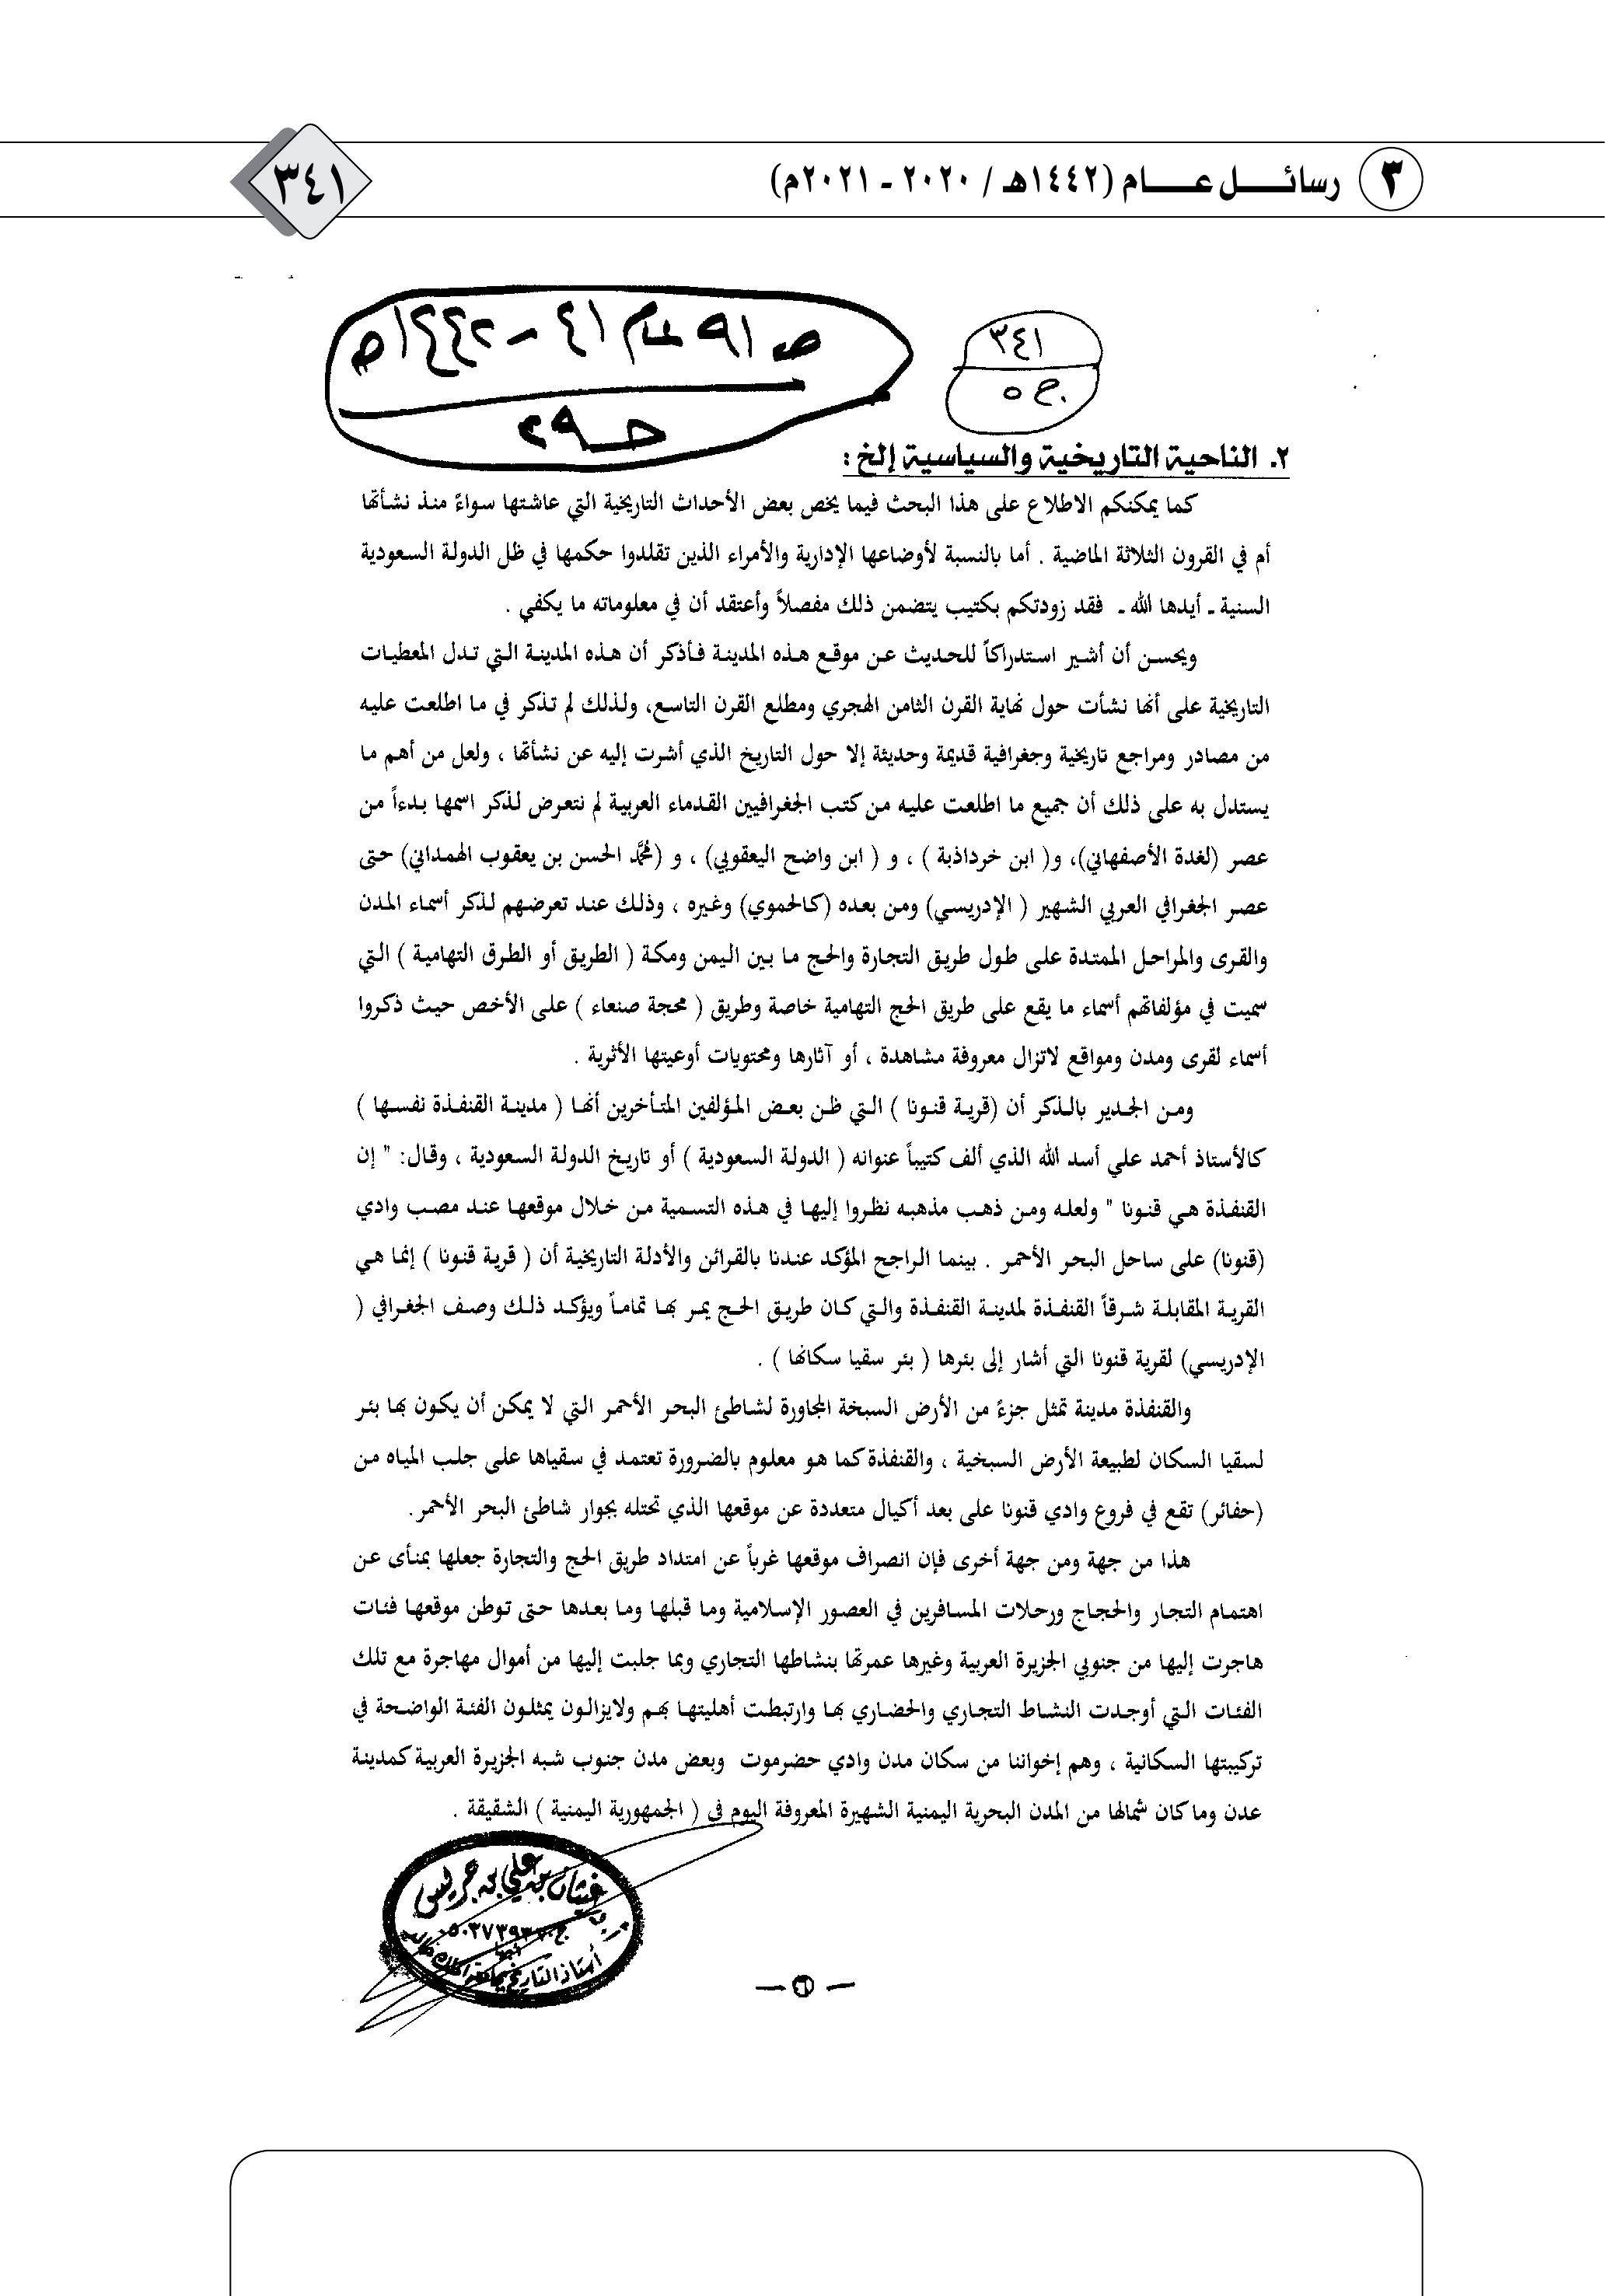 ٣ رسائل عام (١٤٤٢هـ / ٢٠٢٠ - ٢٠٢١م)
٣٤١
ص ٩١ عام ٤١ - ١٤٤٢هـ
حـ ٢٩
٣٤١
ج ٥
٢. الناحية التاريخية والسياسية إلخ :
كما يمكنكم الاطلاع على هذا البحث فيما يخص بعض الأحداث التاريخية التي عاشتها سواءً منذ نشأتها
أم في القرون الثلاثة الماضية . أما بالنسبة لأوضاعها الإدارية والأمراء الذين تقلدوا حكمها في ظل الدولة السعودية
السنية ـ أيدها الله ـ فقد زودتكم بكتيب يتضمن ذلك مفصلاً وأعتقد أن في معلوماته ما يكفي .
ويحسن أن أشير استدراكاً للحديث عن موقع هذه المدينة فأذكر أن هذه المدينة التي تدل المعطيات
التاريخية على أنها نشأت حول نهاية القرن الثامن الهجري ومطلع القرن التاسع، ولذلك لم تذكر في ما اطلعت عليه
من مصادر ومراجع تاريخية وجغرافية قديمة وحديثة إلا حول التاريخ الذي أشرت إليه عن نشأتها ، ولعل من أهم ما
يستدل به على ذلك أن جميع ما اطلعت عليه من كتب الجغرافيين القدماء العربية لم نتعرض لذكر اسمها بدءاً من
عصر (لغدة الأصفهاني)، و( ابن خرداذبة ) ، و ( ابن واضح اليعقوبي) ، و (محمَّد الحسن بن يعقوب الهمداني) حتى
عصر الجغرافي العربي الشهير ( الإدريسي) ومن بعده (كالحموي) وغيره ، وذلك عند تعرضهم لذكر أسماء المدن
والقرى والمراحل الممتدة على طول طريق التجارة والحج ما بين اليمن ومكة ( الطريق أو الطرق التهامية ) التي
سميت في مؤلفاتهم أسماء ما يقع على طريق الحج التهامية خاصة وطريق ( محجة صنعاء ) على الأخص حيث ذكروا
أسماء لقرى ومدن ومواقع لاتزال معروفة مشاهدة ، أو آثارها ومحتويات أوعيتها الأثرية .
ومن الجدير بالذكر أن (قرية قنونا ) التي ظن بعض المؤلفين المتأخرين أنها ( مدينة القنفذة نفسها )
كالأستاذ أحمد علي أسد الله الذي ألف كتيباً عنوانه ( الدولة السعودية ) أو تاريخ الدولة السعودية ، وقال: " إن
القنفذة هي قنونا " ولعله ومن ذهب مذهبه نظروا إليها في هذه التسمية من خلال موقعها عند مصب وادي
(قنونا) على ساحل البحر الأحمر . بينما الراجح المؤكد عندنا بالقرائن والأدلة التاريخية أن ( قرية قنونا ) إنما هي
القرية المقابلة شرقاً القنفذة لمدينة القنفذة والتي كان طريق الحج يمر بها تماماً ويؤكد ذلك وصف الجغرافي (
الإدريسي) لقرية قنونا التي أشار إلى بئرها ( بئر سقيا سكانها ) .
والقنفذة مدينة تمثل جزءً من الأرض السبخة المجاورة لشاطئ البحر الأحمر التي لا يمكن أن يكون بها بئر
لسقيا السكان لطبيعة الأرض السبخية ، والقنفذة كما هو معلوم بالضرورة تعتمد في سقياها على جلب المياه من
(حفائر) تقع في فروع وادي قنونا على بعد أكيال متعددة عن موقعها الذي تحتله بجوار شاطئ البحر الأحمر.
هذا من جهة ومن جهة أخرى فإن انصراف موقعها غرباً عن امتداد طريق الحج والتجارة جعلها بمنأى عن
اهتمام التجار والحجاج ورحلات المسافرين في العصور الإسلامية وما قبلها وما بعدها حتى توطن موقعها فئات
هاجرت إليها من جنوبي الجزيرة العربية وغيرها عمرتها بنشاطها التجاري وبما جلبت إليها من أموال مهاجرة مع تلك
الفئات التي أوجدت النشاط التجاري والحضاري بها وارتبطت أهليتها بهم ولايزالون يمثلون الفئة الواضحة في
تركيبتها السكانية ، وهم إخواننا من سكان مدن وادي حضرموت وبعض مدن جنوب شبه الجزيرة العربية كمدينة
عدن وما كان شمالها من المدن البحرية اليمنية الشهيرة المعروفة اليوم في ( الجمهورية اليمنية ) الشقيقة .
غيثان بن علي بن جريس
أبها
أستاذ التاريخ بجامعة الملك خالد
— ٦ —